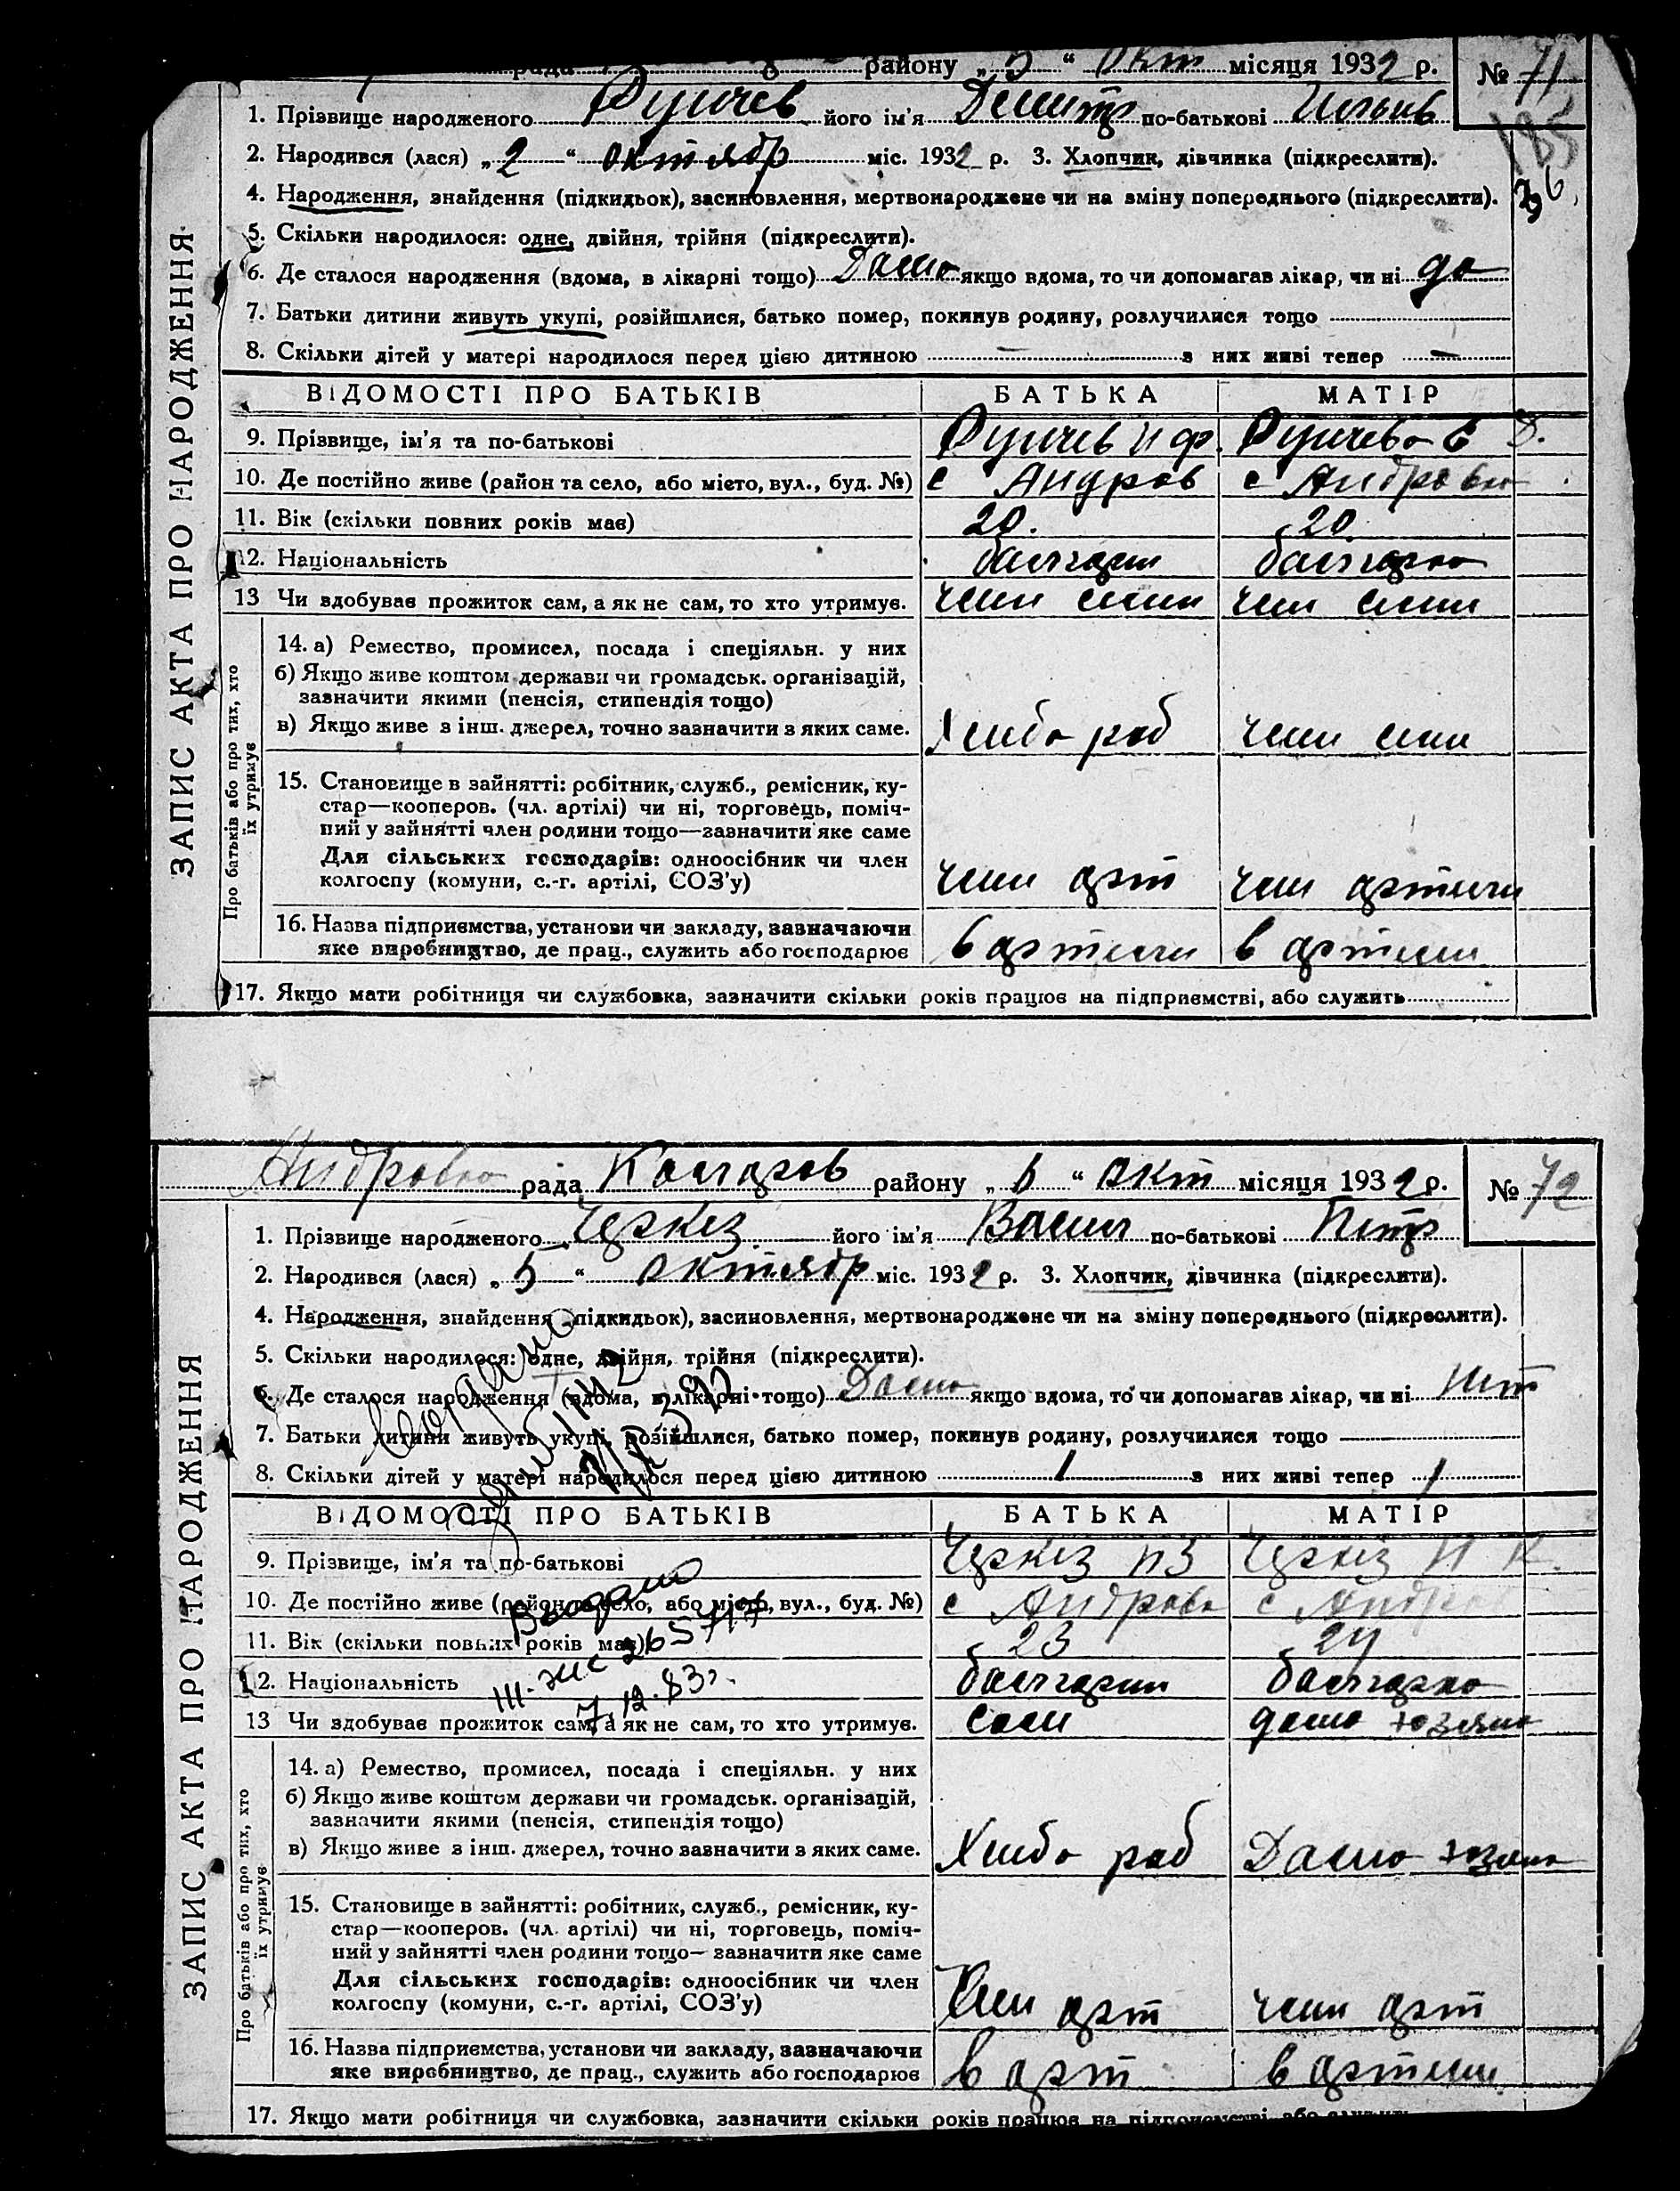 рада району „3“ Окт місяця 1932 р. № 71
1. Прізвище народженого його ім'я Дмитр по-батькові
185
2. Народився (лася) „2“ октябр міс. 1932 р. 3. Хлопчик, дівчинка (підкреслити).
4. Народження, знайдення (підкидьок), засиновлення, мертвонароджене чи на зміну попереднього (підкреслити).
5. Скільки народилося: одне, двійня, трійня (підкреслити).
6. Де сталося народження (вдома, в лікарні тощо) Дома якщо вдома, то чи допомагав лікар, чи ні да
7. Батьки дитини живуть укупі, розійшлися, батько помер, покинув родину, розлучилися тощо
8. Скільки дітей у матері народилося перед цією дитиною — з них живі тепер —
ЗАПИС АКТА ПРО НАРОДЖЕННЯ
ВІДОМОСТІ ПРО БАТЬКІВ БАТЬКА МАТІР
9. Прізвище, ім'я та по-батькові
10. Де постійно живе (район та село, або місто, вул., буд. №) с Андров с Андровка
11. Вік (скільки повних років має) 20. 20.
12. Національність болгарин болгарка
13 Чи здобуває прожиток сам, а як не сам, то хто утримує. член семи член семи
Про батьків або про тих, хто їх утримує
14. а) Ремество, промисел, посада і спеціяльн. у них
б) Якщо живе коштом держави чи громадськ. організацій,
зазначити якими (пенсія, стипендія тощо)
в) Якщо живе з інш. джерел, точно зазначити з яких саме. Хлебо роб член семи
15. Становище в зайнятті: робітник, служб., ремісник, ку-
стар—кооперов. (чл. артілі) чи ні, торговець, поміч-
ний у зайнятті член родини тощо—зазначити яке саме
Для сільських господарів: одноосібник чи член
колгоспу (комуни, с.-г. артілі, СОЗ'у) член арт член артели
16. Назва підприємства, установи чи закладу, зазначаючи
яке виробництво, де прац., служить або господарює в артели в артели
17. Якщо мати робітниця чи службовка, зазначити скільки років працює на підприємстві, або служить
Андровка рада Колгаров району „6“ Окт місяця 1932 р. № 72
1. Прізвище народженого Черкез його ім'я Васил по-батькові Петр
2. Народився (лася) „5“ октябр міс. 1932 р. 3. Хлопчик, дівчинка (підкреслити).
4. Народження, знайдення (підкидьок), засиновлення, мертвонароджене чи на зміну попереднього (підкреслити).
5. Скільки народилося: одне, двійня, трійня (підкреслити).
6. Де сталося народження (вдома, в лікарні тощо) Дома якщо вдома, то чи допомагав лікар, чи ні нет
7. Батьки дитини живуть укупі, розійшлися, батько помер, покинув родину, розлучилися тощо
8. Скільки дітей у матері народилося перед цією дитиною 1 з них живі тепер 1
ЗАПИС АКТА ПРО НАРОДЖЕННЯ
ВІДОМОСТІ ПРО БАТЬКІВ БАТЬКА МАТІР
9. Прізвище, ім'я та по-батькові Черкез П З Черкез И К.
10. Де постійно живе (район та село, або місто, вул., буд. №) с Андровка с Андров
11. Вік (скільки повних років має) 23 24
12. Національність болгарин болгарка
13 Чи здобуває прожиток сам, а як не сам, то хто утримує. сам домо хозяйка
Выдано
III-ЖС 265717
7.12.83г.
Про батьків або про тих, хто їх утримує
14. а) Ремество, промисел, посада і спеціяльн. у них
б) Якщо живе коштом держави чи громадськ. організацій,
зазначити якими (пенсія, стипендія тощо)
в) Якщо живе з інш. джерел, точно зазначити з яких саме. Хлебо роб Домо хозяйка
15. Становище в зайнятті: робітник, служб., ремісник, ку-
стар—кооперов. (чл. артілі) чи ні, торговець, поміч-
ний у зайнятті член родини тощо—зазначити яке саме
Для сільських господарів: одноосібник чи член
колгоспу (комуни, с.-г. артілі, СОЗ'у) Член арт член арт
16. Назва підприємства, установи чи закладу, зазначаючи
яке виробництво, де прац., служить або господарює в арт в артели
17. Якщо мати робітниця чи службовка, зазначити скільки років працює на підприємстві або